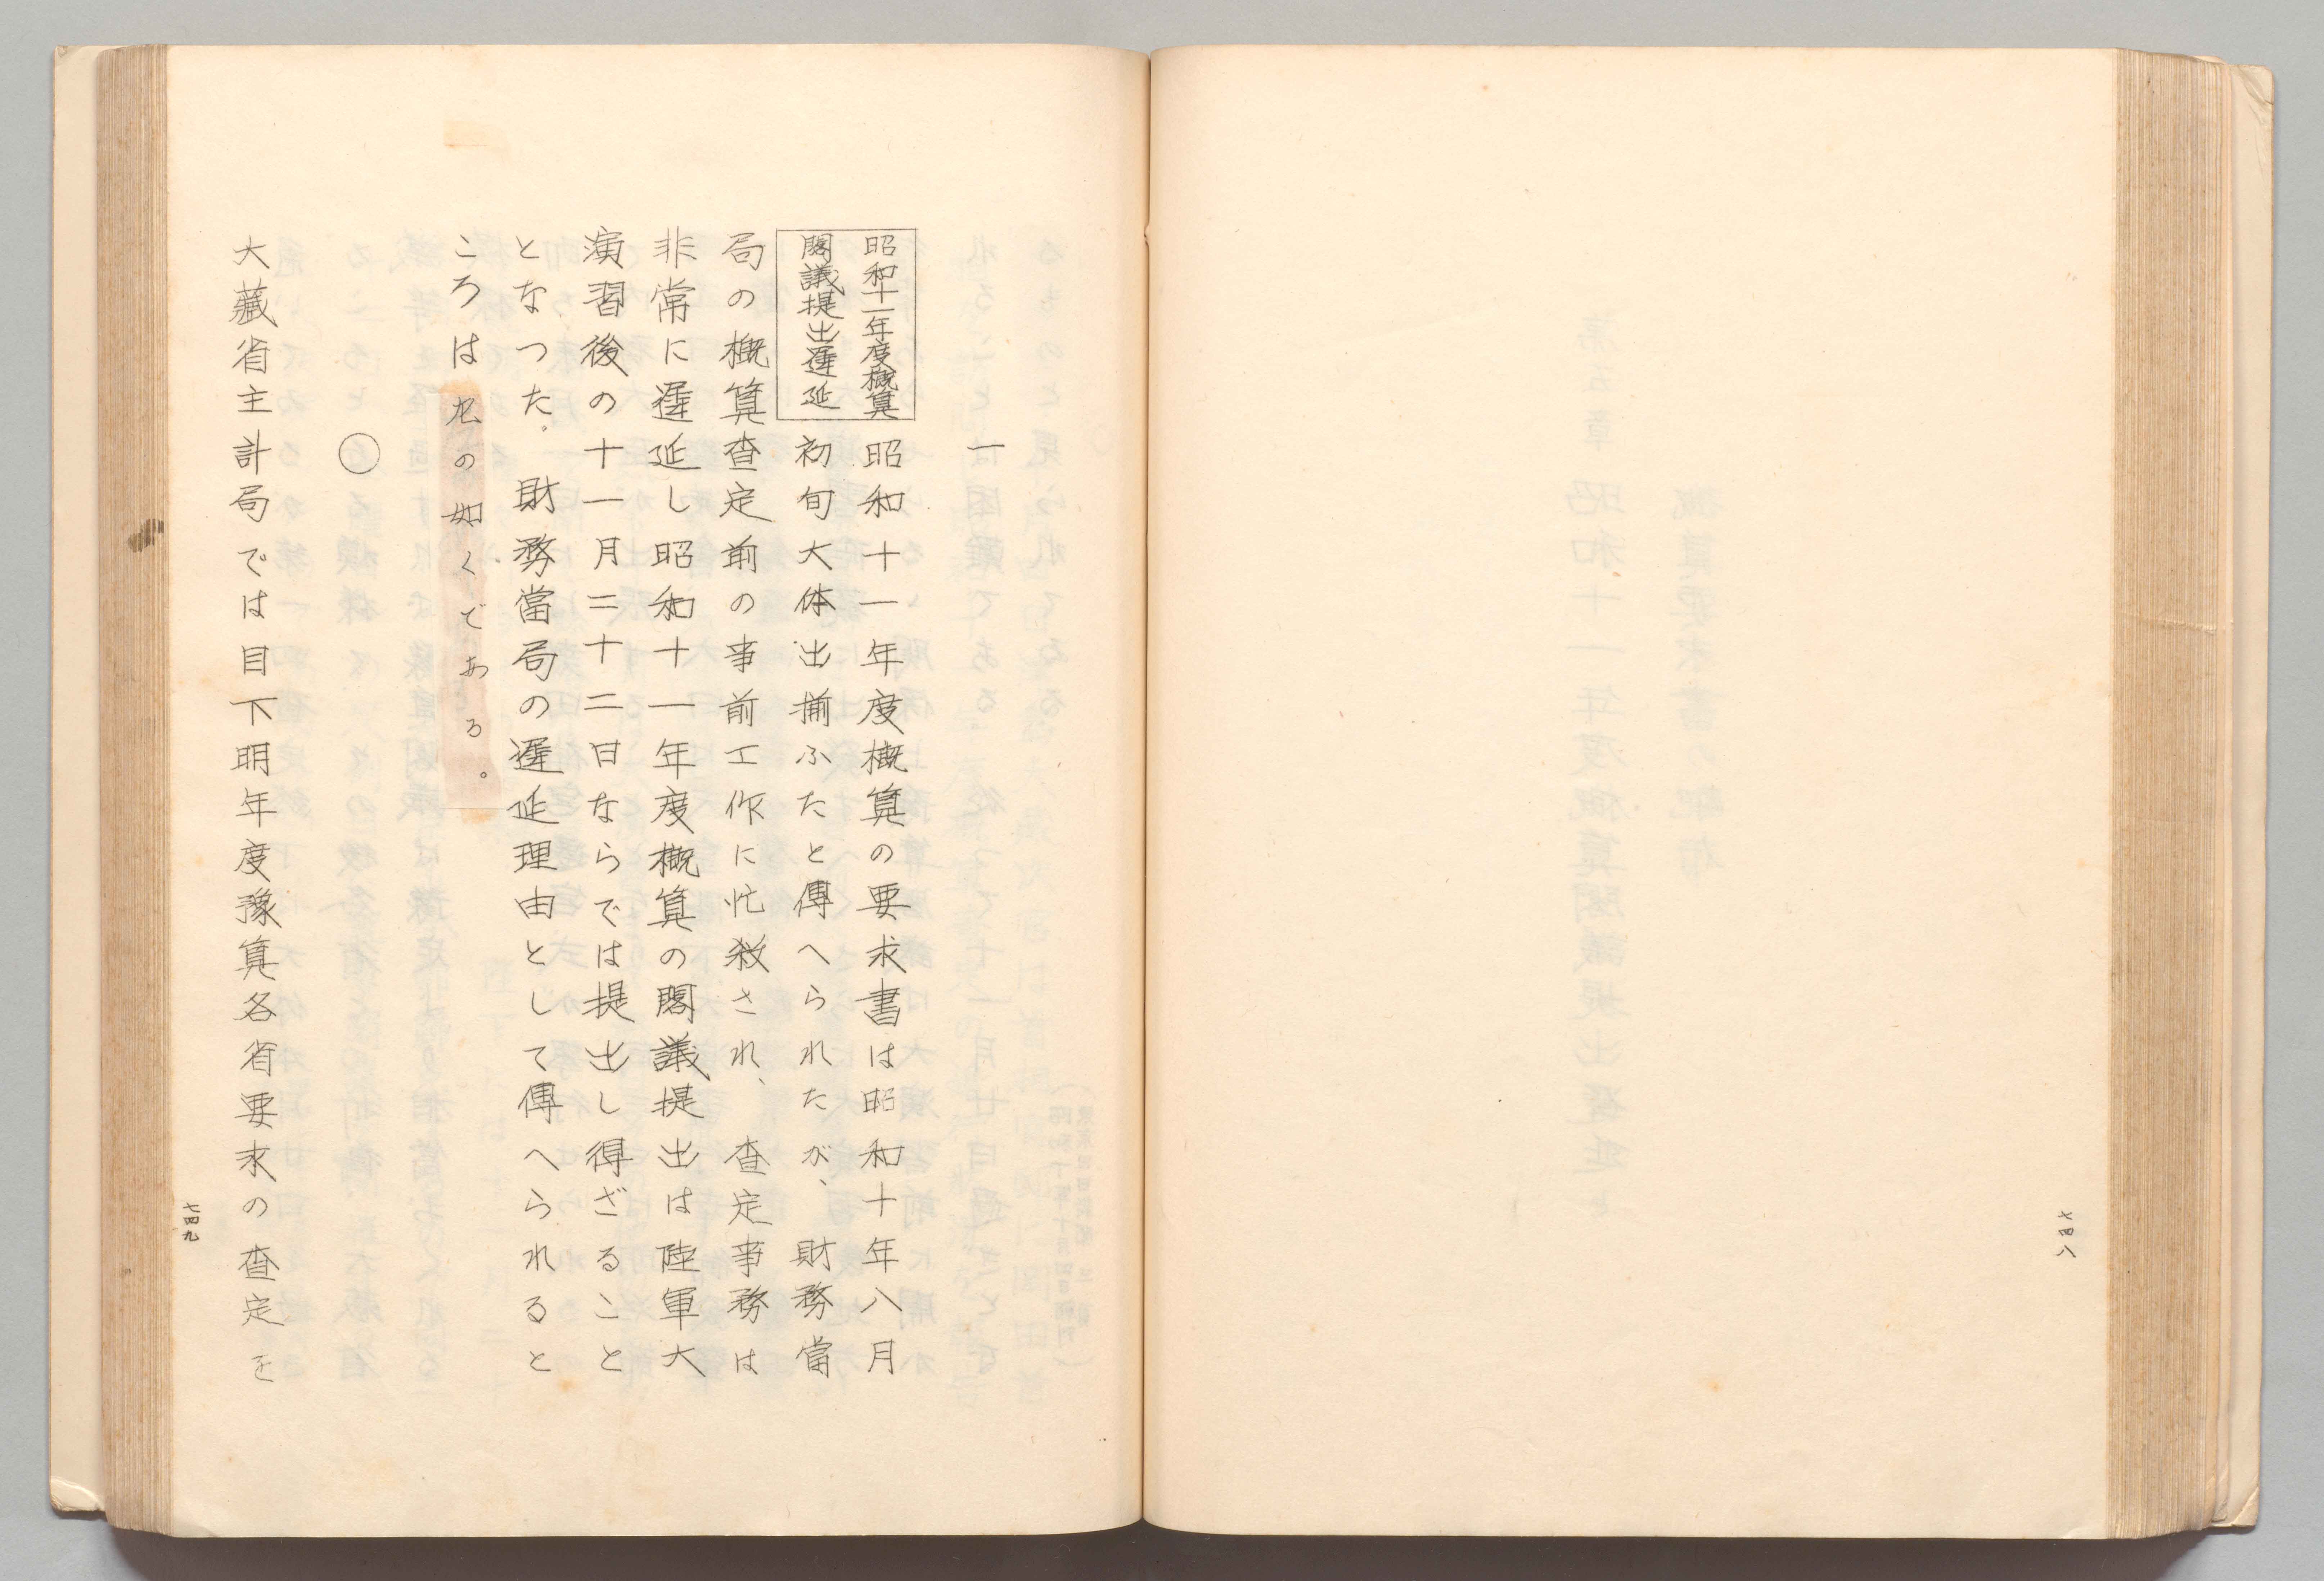 七四八
一
昭和十一年度概算
閣議提出遲延
昭和十一年度概算の要求書は昭和十年八月
初旬大体出揃ふたと傳へられたが、財務當
局の概算査定前の事前工作に忙殺され、査定事務は
非常に遲延し昭和十一年度概算の閣議提出は陸軍大
演習後の十一月二十二日ならでは提出し得ざること
となつた。財務當局の遲延理由として傳へられると
ころは左の如くである。
○
大藏省主計局では目下明年度豫算各省要求の査定を
七四九